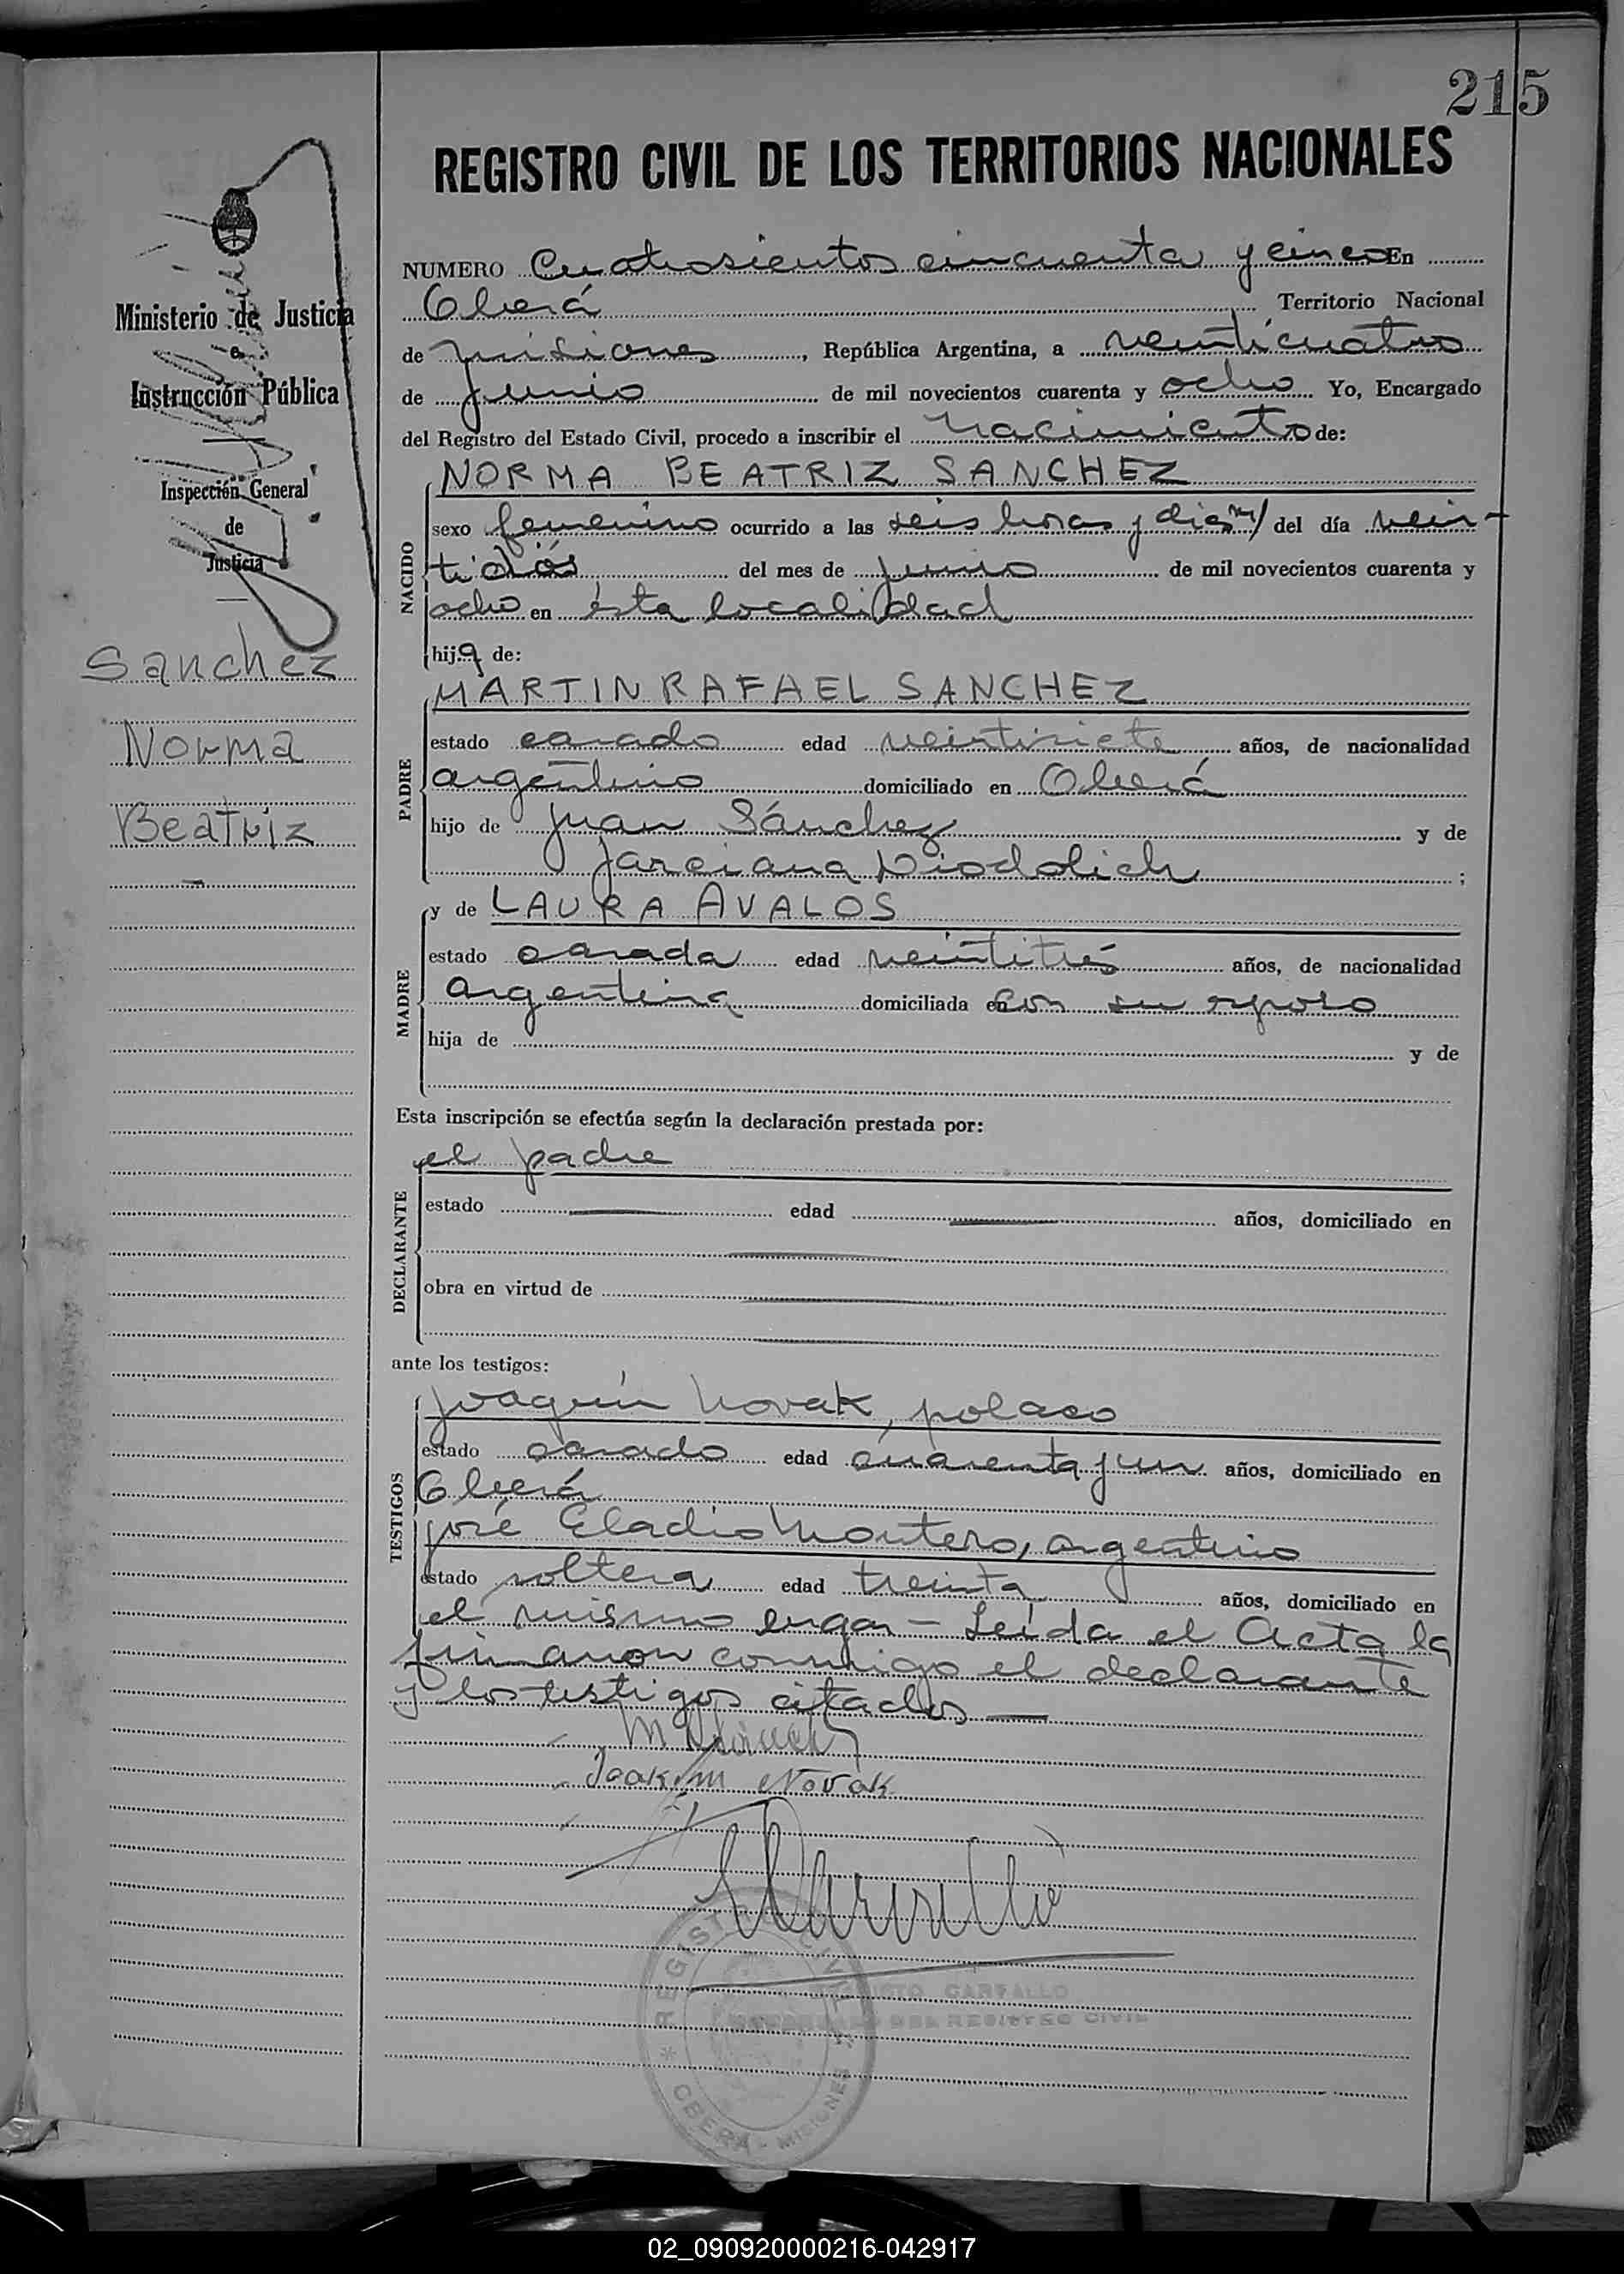 215
REGISTRO CIVIL DE LOS TERRITORIOS NACIONALES
NUMERO Cuatrosientos cincuenta y cinco En
Oberá Territorio Nacional
de Misiones, República Argentina, a veinticuatro
de junio de mil novecientos cuarenta y ocho Yo, Encargado
del Registro del Estado Civil, procedo a inscribir el nacimiento de:
Ministerio de Justicia
e
Instrucción Pública
Inspección General
de
Justicia
Sanchez
Norma
Beatriz
NACIDO
NORMA BEATRIZ SANCHEZ
sexo femenino ocurrido a las seis horas y diez m/ del día vein-
tidós del mes de junio de mil novecientos cuarenta y
ocho en ésta localidad
hija de:
PADRE
MARTIN RAFAEL SANCHEZ
estado casado edad veintisiete años, de nacionalidad
argentino domiciliado en Oberá
hijo de Juan Sánchez y de
;
MADRE
y de LAURA AVALOS
estado casada edad veintitrés años, de nacionalidad
argentina domiciliada en con su esposo
hija de y de
Esta inscripción se efectúa según la declaración prestada por:
DECLARANTE
el padre
estado edad años, domiciliado en
obra en virtud de
ante los testigos:
TESTIGOS
Joaquín Novak, polaco
estado casado edad cuarenta y un años, domiciliado en
Oberá
José Eladio Montero, argentino
estado soltero edad treinta años, domiciliado en
el mismo lugar - Leída el Acta la
firmaron conmigo el declarante
y los testigos citados —
Joakim Novak
REGISTRO CIVIL
CARVALLO
DEL REGISTRO CIVIL
OBERA - MISIONES
02_090920000216-042917